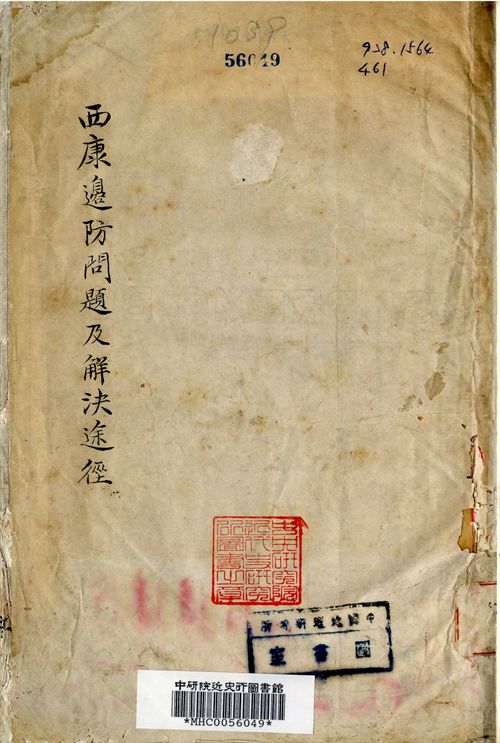 1039
56049
958.1564
461
西康邊防問題及解決途徑
中央研究院
近代史研究
所圖書之章
圖書室
中研院近史所圖書館
*MHC0056049*